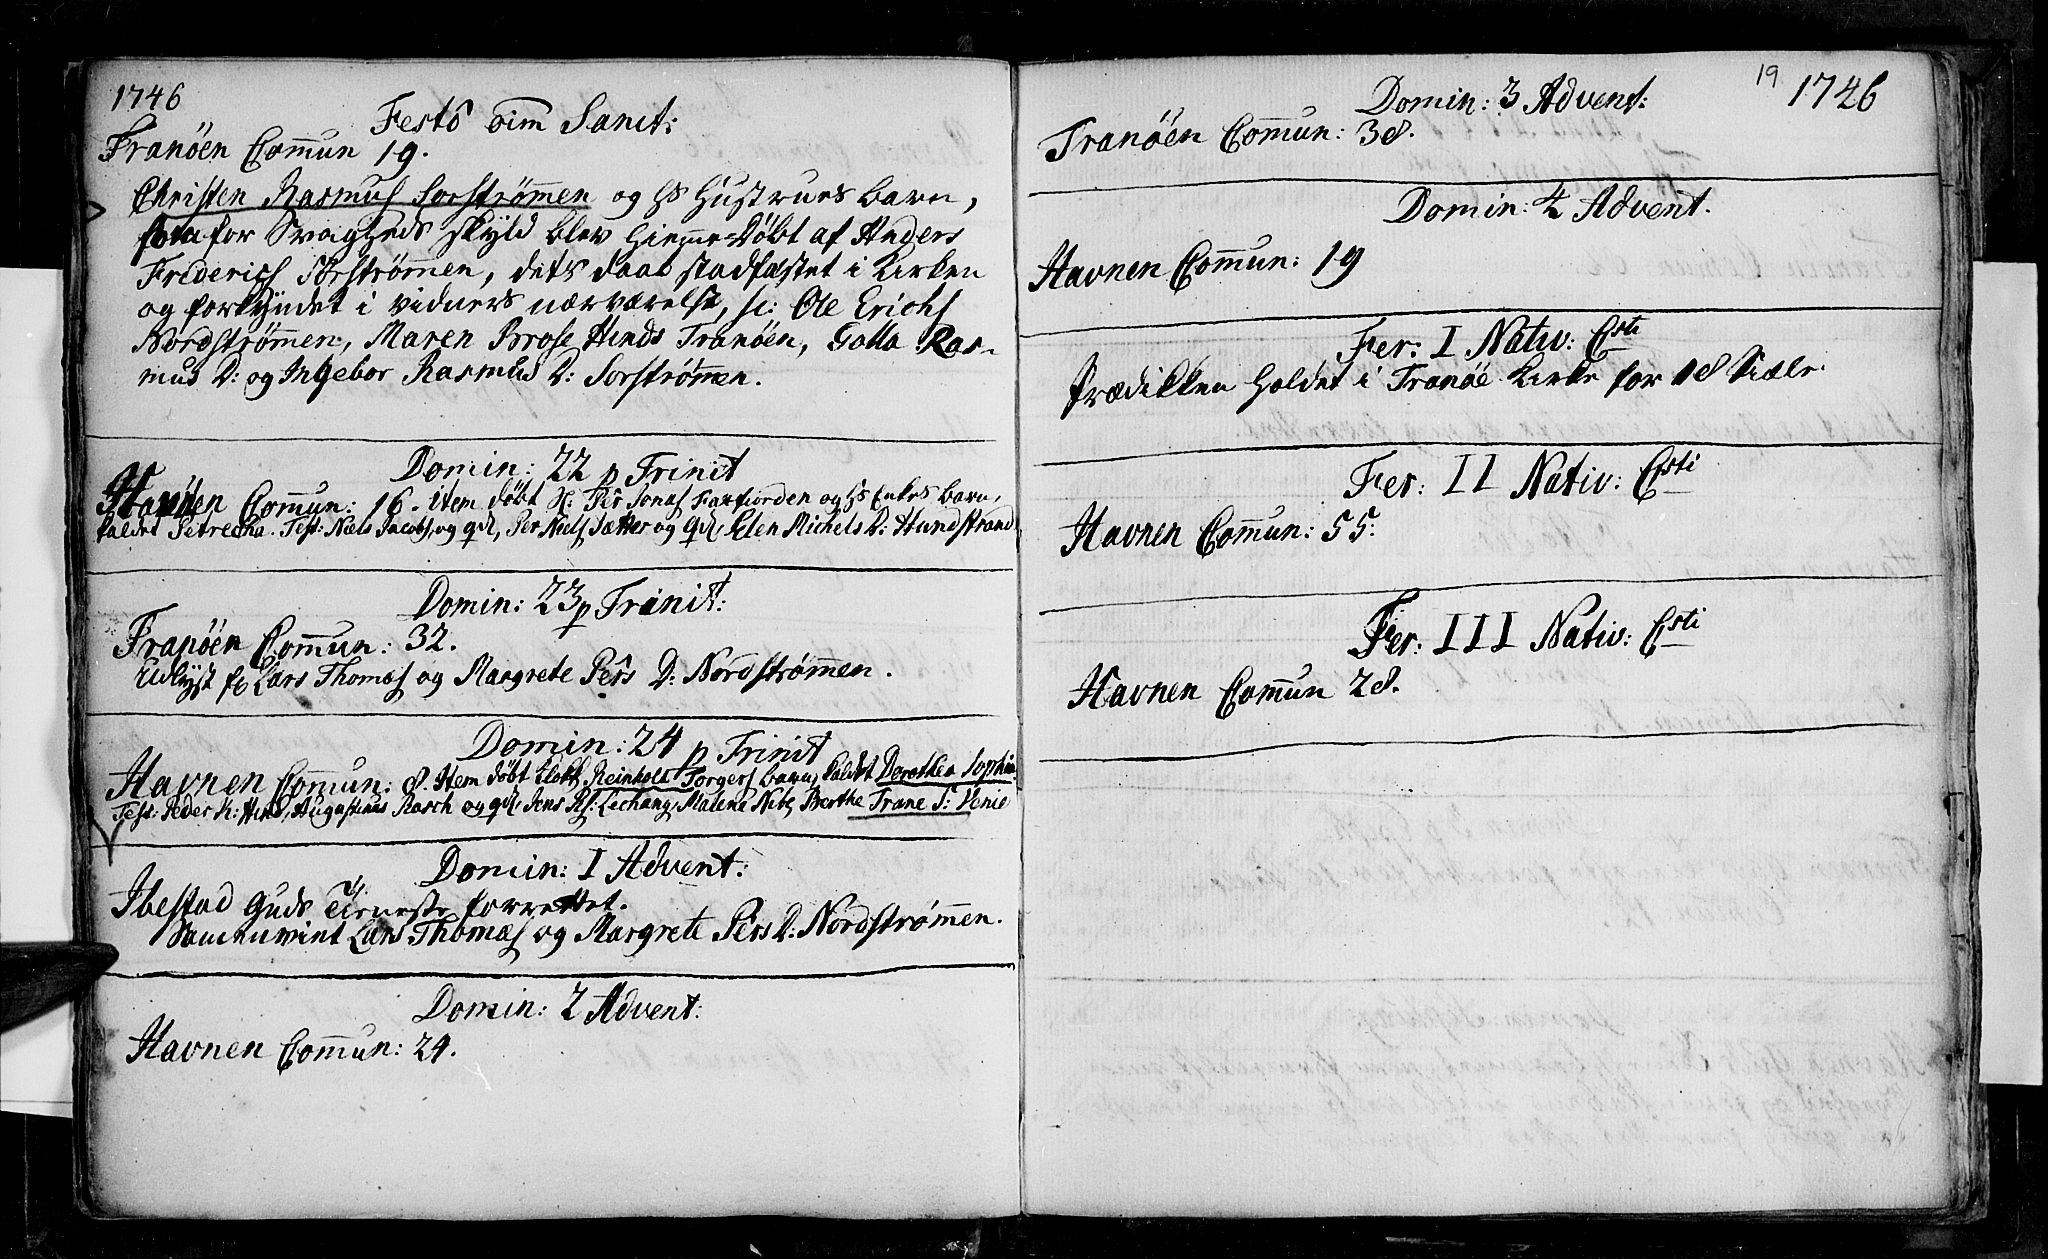 1746
Festo oim Sanct:
Tranöen Commun 19.
Christen Rasmus Sorströmmen og hs Hustrues barn,
for Svagheds skyld blev hiemme-Döbt af Anders
Friderichs Sörströmmen, dets daab stadfæstet i Kirken
og forkyndet i vidners nærværelse, sc: Ole Erichs
Nordströmmen, Maren Brose Hinds Tranöen, Ras-
mus D: og Ingebor Rasmus D: Sorströmmen.
Domin: 22 p Trinit
Havnen Commun: 16. item döbt S: Per Jonas Faxfiorden og hs Enkes barn,
kaldet Petrecha. Test: Niels Jacobs, og qv, Per Niels Sætter og qv, Elen Michels D: Hundstrand
Domin: 23 p Trinit:
Tranöen Commun: 32.
Udlyst Lars Thomas og Margrete Pers D: Nordströmmen.
Domin: 24 p Trinit
Havnen Commun: 8. Item döbt Klokk. Reinholt Torgers barn, kaldet Dorothea Sophia
Test: Peder K: Hind, Augustinus Rasch og qv, Jens Rs: Lechang, Malena Nibe, Berthe Trane S: Venie
Domin: I Advent:
Ibestad Guds Tieneste forrettet.
Sammenvint Lars Thomas og Margrete Pers D: Nordströmmen.
Domin: 2 Advent:
Havnen Commun: 24.
19 1746
Domin: 3 Advent:
Tranöen Commun: 38.
Domin: 4 Advent.
Havnen Commun: 19
Fer: I Nativ: Csti
Prædikken holdet i Tranöe Kirke for 18 Siæle.
Fer: II Nativ: Csti
Havnen Commun: 55.
Fer: III Nativ: Csti
Havnen Commun 28.